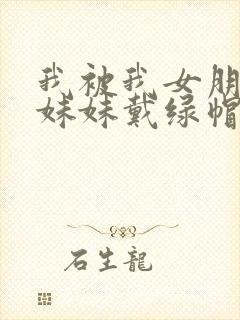 我被我女朋
妹妹戴绿帽
石生龍